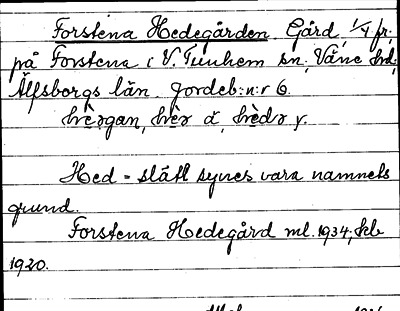 Forstena Hedegården Gård, 1/4 fr.
på Forstena i V. Tunhem sn, Väne hd,
Älfsborgs län. Jordeb:n:r 6.
Hed = slätt synes vara namnets
grund.
Forstena Hedegård ml. 1934; kb
1920.